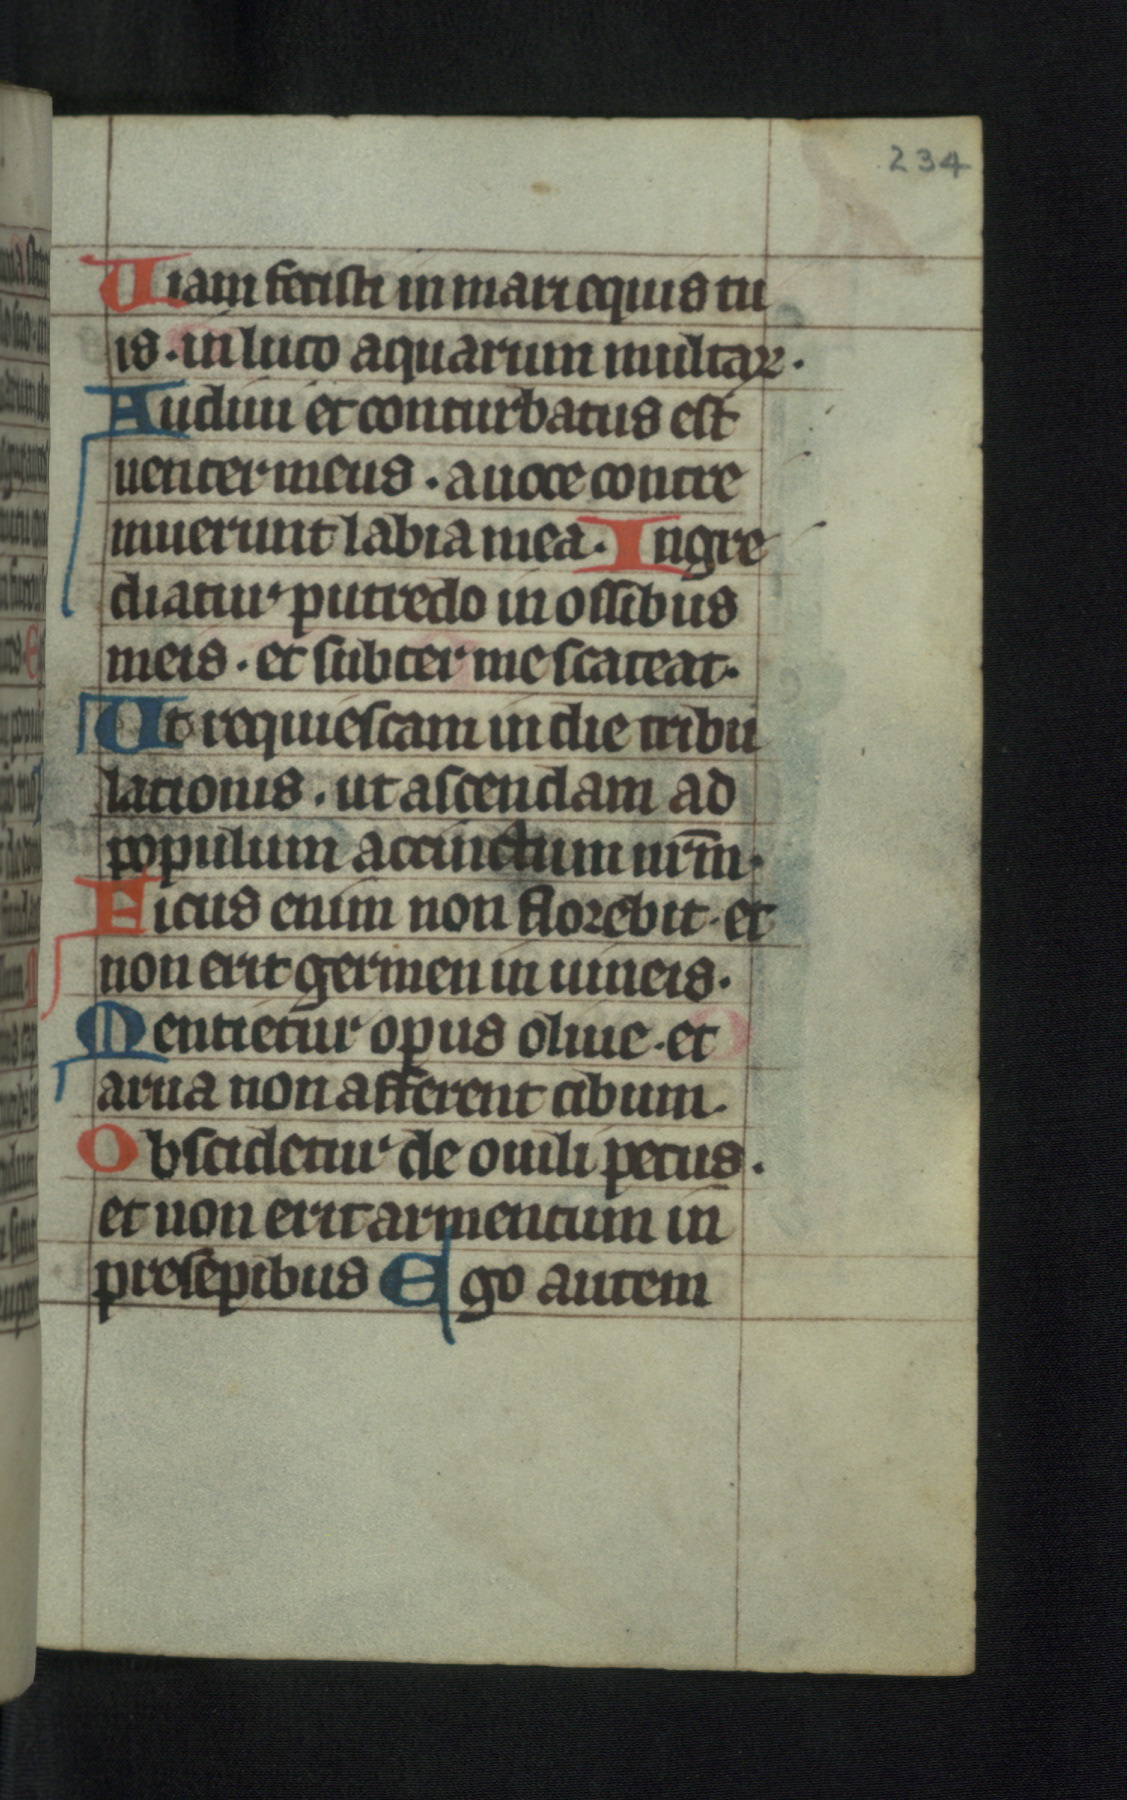 234
Uiam fecisti in mari equis tu
is. in luto aquarum multaꝝ.
Audiui et conturbatus est
uenter meus. a uoce contre
muerunt labia mea. Ingre
diatur putredo in ossibus
meis. et subter me scateat.
Ut requiescam in die tribu
lationis. ut ascendam ad
populum accinctum nr̄m.
Ficus enim non florebit. et
non erit germen in uineis.
Mentietur opus oliue. et
arua non afferent cibum.
Obscidetur de ouili pecus.
et non erit armentum in
presepibus Ego autem